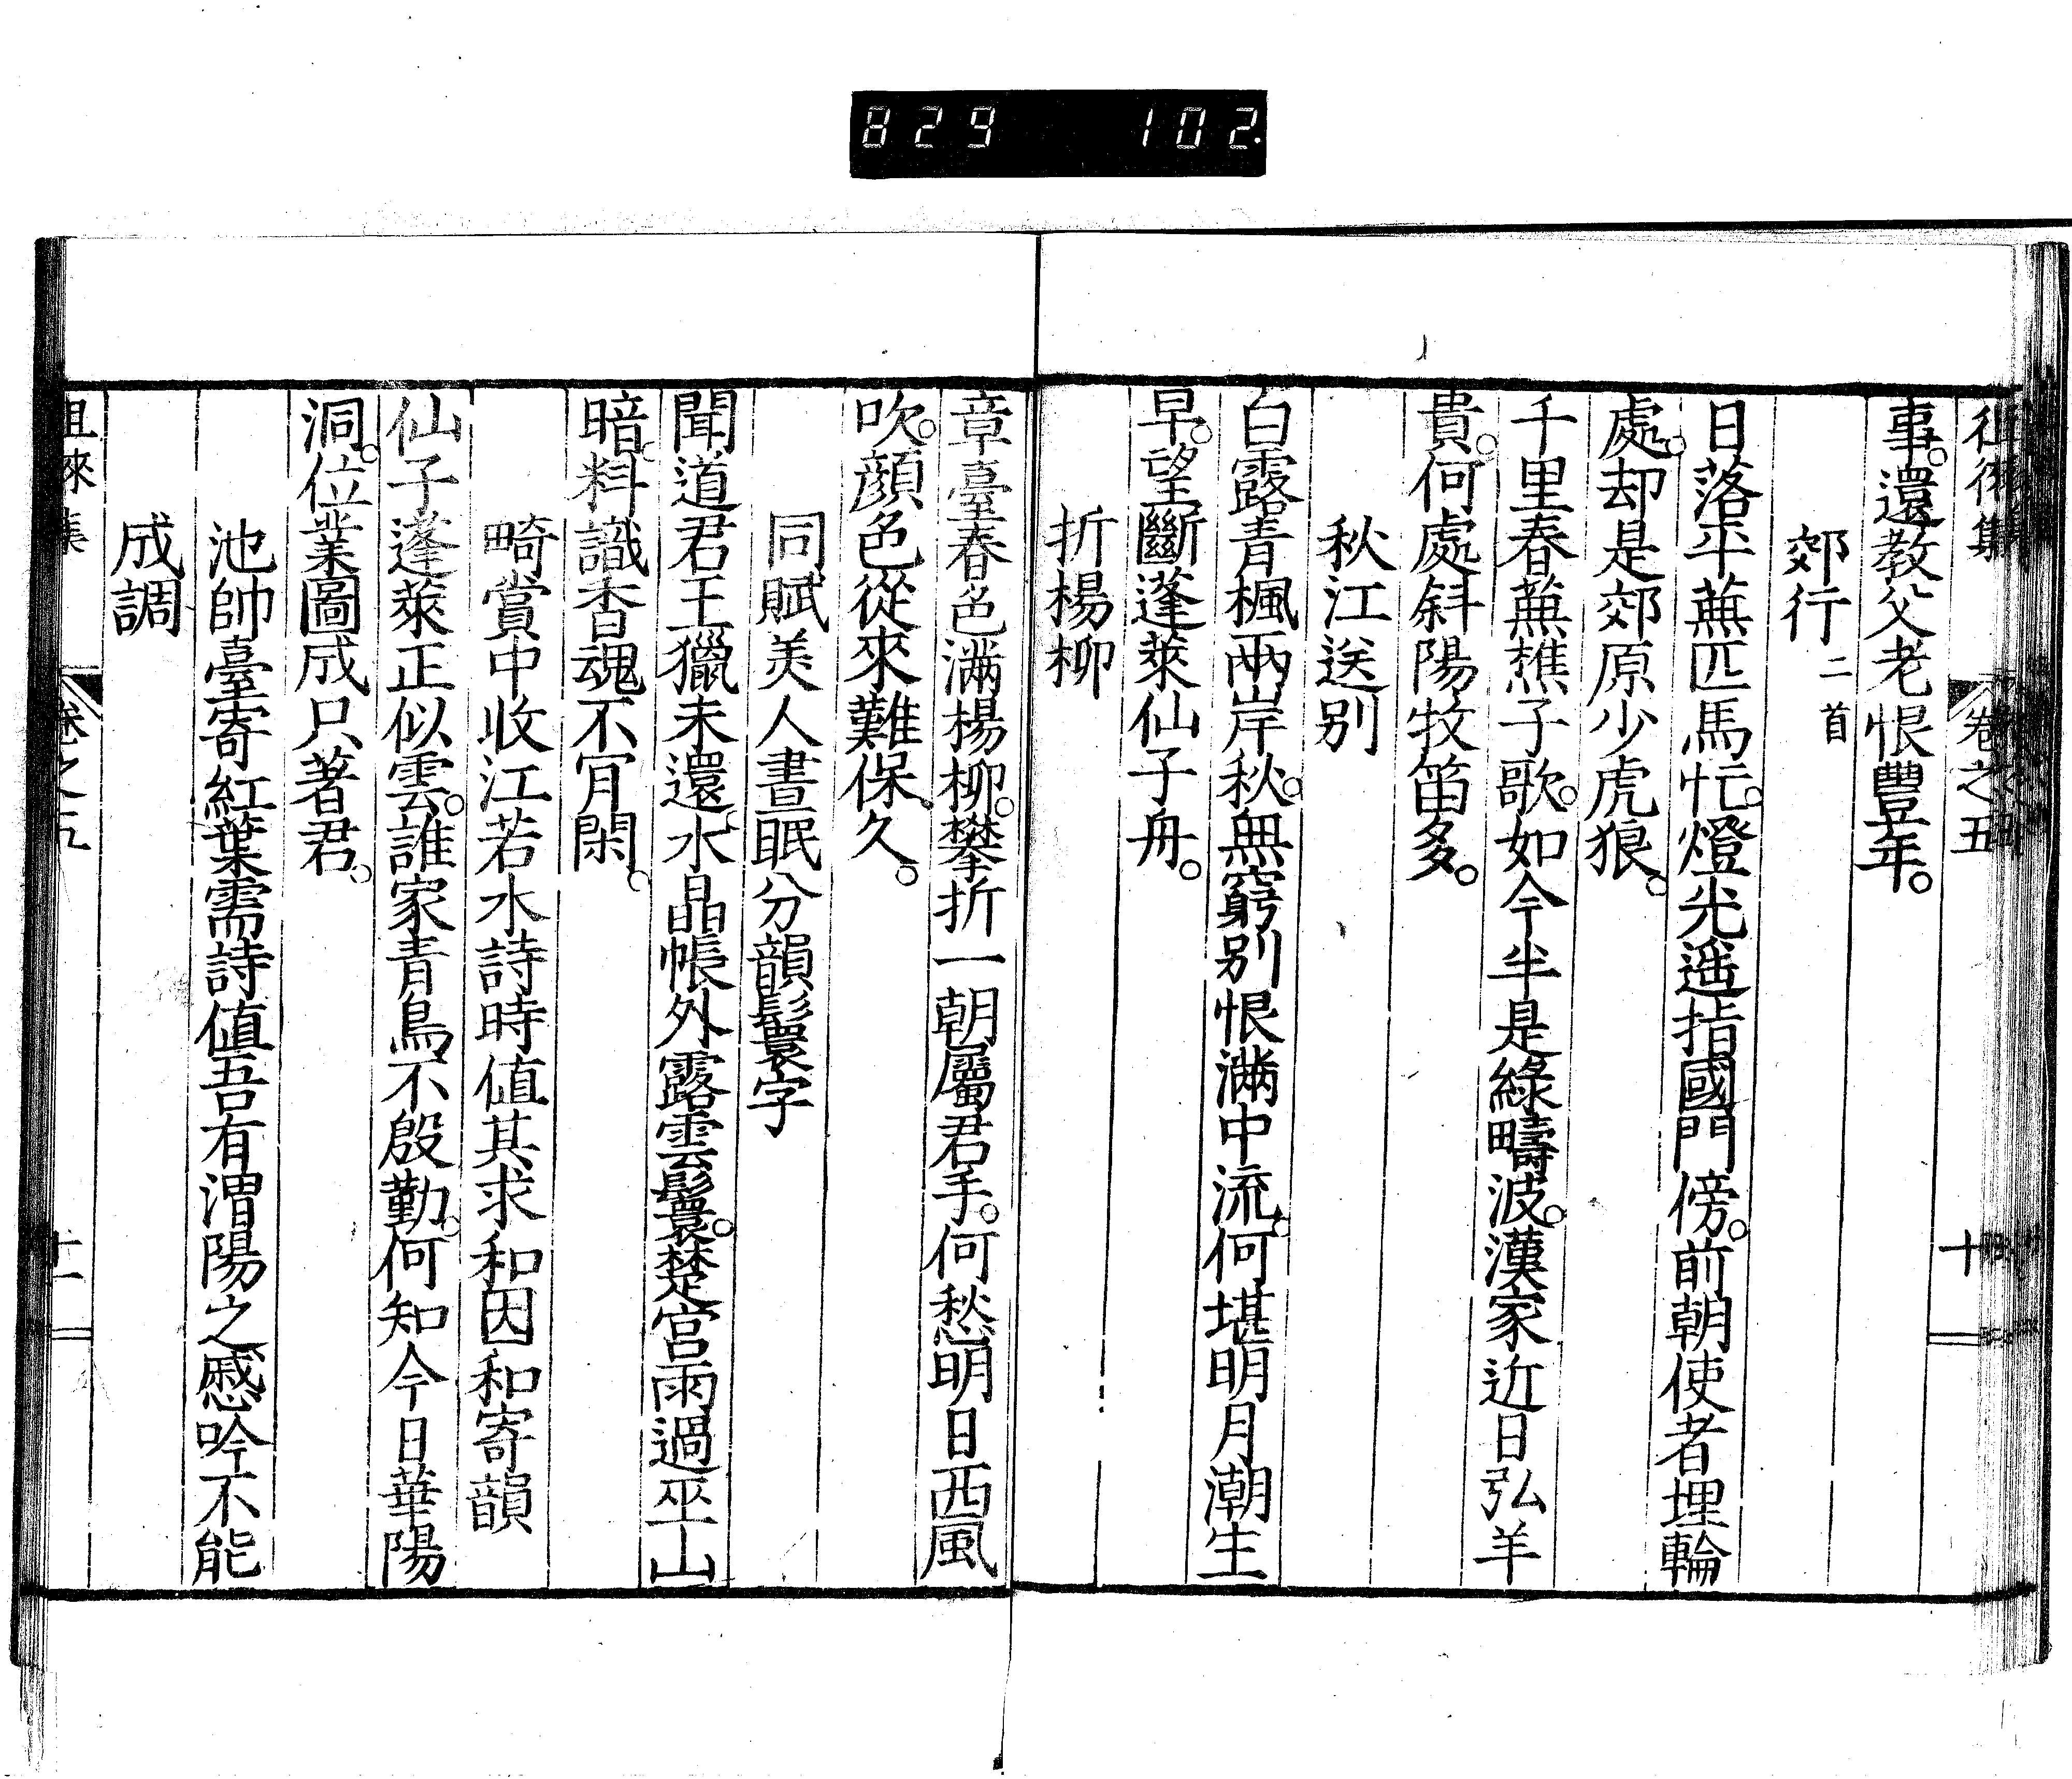 829 102.
徂徠集 卷之五 十
事。還教父老恨豐年。
郊行 二首
日落平蕪匹馬忙。燈光遥指國門傍。前朝使者埋輪
處。却是郊原少虎狼。
千里春蕪樵子歌。如今半是綠疇波。漢家近日弘羊
貴。何處斜陽牧笛多。
秋江送別
白露青楓兩岸秋。無窮別恨滿中流。何堪明月潮生
早。望斷蓬萊仙子舟。
折楊柳
章臺春色滿楊柳。攀折一朝屬君手。何愁明日西風
吹。顔色從來難保久。
同賦美人晝眠分韻鬟字
聞道君王獵未還。水晶帳外露雲鬟。楚宮雨過巫山
暗。料識香魂不肎閑。
畸賞中收江若水詩時値其求和因和寄韻
仙子蓬萊正似雲。誰家青鳥不殷勤。何知今日華陽
洞。位業圖成只著君。
池帥臺寄紅葉需詩値吾有渭陽之慼吟不能
成調
徂徠集 卷之五 十一